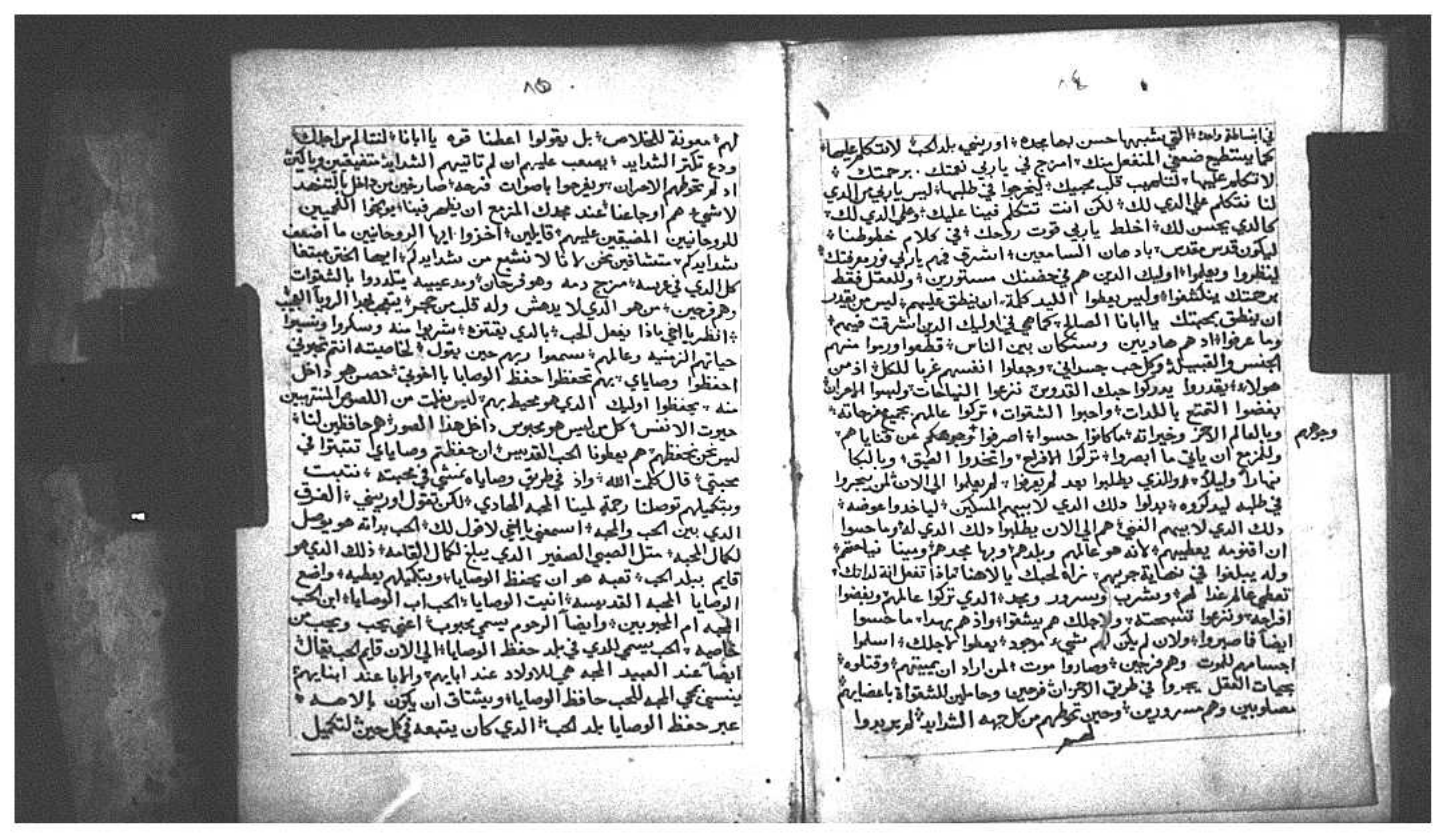 ٨٤
في ابساطة واحدة التي يشبهها حسن بها مجده اوريني بلد الحب لاتكلم عليها
كما يستطيع ضعفي المنفعل منك امزج في يا ربي نعمتك برحمتك
لاتكلم عليها لتلتهب قلب محبيك ليخرجوا في طلبها ليس يا ربي من الدي
لنا نتكلم علي الدي لك لكن انت تتكلم فينا عليك وعلي الدي لك
كالدي يحسن لك اخلط يا ربي قوت روحك في كلام خطوطنا
ليكون قدس مقدس بادهان السامعين اشرق فيهم يا ربي نور معرفتك
لينظروا ويعلموا اوليك الدين هم في حضنك مستورين وللعقل فقط
برحمتك ينكشفوا وليس يعطوا اللبد كلمة ان ينطق عليهم ليس من يقدر
ان ينطق بمحبتك يا ابانا الصالح كما هي في اوليك الدين اشرقت فيهم
وما عرفوا اد هم هاديين وسكان بين الناس قطعوا وربوا منهم
الجنس والقبيلة وكل حب جسداني وجعلوا انفسهم غربا للكل اد من
هولاء يقدروا يدركوا حبك القدوس نزعوا النياحات ولبسوا الاحزان
بغضوا التمتع باللدات واحبوا الشقوات تركوا عالمهم بجميع مفرحاته
وبالعالم الاخر وخيراته ما كانوا حسوا اصرفوا وجوهكم عن قناياهم
وجوههم
وللمزمع ان ياتي ما ابصروا تركوا الافراح واتخدوا الضيق وبالبكا
نهاراً وليلاً والذي يطلبوا بعد لم يعرفوا لم يعلموا الي الان لمن يجروا
في طلبه ليدركوه بدلوا دلك الدي لابيهم المسكين لياخدوا عوضه
دلك الدي لابيهم الغني هم الي الان يطلبوا دلك الدي له وما حسوا
ان اقنومه يعطيهم لانه هو عالمهم وبلدهم وبها مجدهم وبيتا نياحتهم
ولم يبلغوا في نهاية جريهم نراه لمحبك يا الاهنا ماذا تفعل انة لداتك
تعطي عالم غدا لهم ومشرب وسرور ومجد الدي تركوا عالمهم وبغضوا
افراحه ونزعوا تسبحته ولاجلك هم يشقوا واد هم بهدا ما حسوا
ايضاً فاصبروا ولان لم يكن لهم شي موجود يعطوا لاجلك اسلموا
اجسامهم للموت وهم فرحين وصاروا موت لمن اراد ان يميتهم وقتلوه
بحيات العقل يجروا في طريق الاحزان فرحين وحاملين للشقواة باعضايهم
مصلوبين وهم مسرورين وحين تحوطهم من كل جهه الشدايد لم يريدوا
لهم
٨٥
لهم معونة للخلاص بل يقولوا اعطنا قوه يا ابانا لنتالم من اجلك
ودع تكتر الشدايد يصعب عليهم ان لم تاتيهم الشدايد متفيقين وباكين
اد لم تحوطهم الاحزان ويفرحوا باصوات فرحه صارخين من داخل بالتنهد
لاشي هم اوجاعنا عند مجدك المزمع ان يظهر فينا يوبخوا اللحميين
للروحانيين المضيقين عليهم قايلين اخزوا ايها الروحانيين ما اضعف
شدايدكم متشاقين نحن لانا لا نشبع من شدايدكم ايها الختن مبتغا
كل الدي في عرسه مزج دمه وهو فرحان ومدعييه يتلددوا بالشقوات
وهم فرحين من هو الدي لا يدهش وله قلب من حجر ينتهي لهدا الرويا العجب
انظر يا اخي ماذا يفعل الحب بالدي يقتنوه شربوا منه وسكروا ونسيوا
حياتهم الزمنيه وعالمهم سمعوا ربهم حين يقول لخاصيته انتم تحبوني
احفظوا وصاياي بهم تحفظوا حفظ الوصايا يا اخوتي حصن هو داخل
منه يحفظوا اوليك الدي هو محيط بهم ليس يفلت من اللصوص المنتهبين
حيوت الانفس كل من ليس هو محبوس داخل هدا الصور هم حافظين لنا
ليس نحن نحفظهم هم يعطونا الحب القديس ان حفظتم وصاياي تتبتوا في
محبتي قال كلمت الله واد في طريق وصاياه نمشي في محبته نتبت
وبتكيلهم توصلنا رحمته لمينا المحبه الهادي لكن تقول اوريني الفرق
الدي بين الحب والمحبه اسمعني يا اخي لاقول لك الحب بداته هو يوصل
لكمال المحبه متل الصبي الصغير الدي يبلغ لكمال القامه ذلك الدي هو
قايم ببلد الحب تعبه هو ان يحفظ الوصايا وبتكيلهم يعطيه واضع
الوصايا المحبه القديسه ابنت الوصايا الحب اب الوصايا ابن الحب
المحبه ام المحبوبين وايضاً الرحوم يسمي محبوب اعني يحب ويحب من
خاصيه الحب يسمي للدي في بلد حفظ الوصايا الي الان قايم الحب يقال
ايضاً عند العبيد المحبه هي للاولاد عند ابايهم والابا عند ابنايهم
ينسى بمجي المحبه للمحب حافظ الوصايا ويشتاق ان يكون بالاحبه
عبر حفظ الوصايا بلد الحب الدي كان يتبعه في كل حين لتكميل